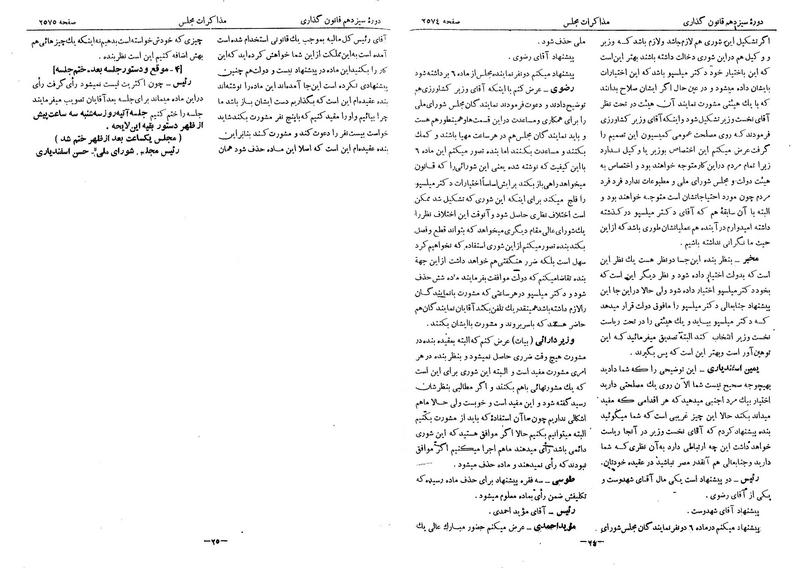 دورهٔ سیزدهم قانون گذاری
مذاکرات مجلس
صفحه ۲۵۷۴
اگر تشکیل این شوری هم لازم باشد ولازم باشد کـه وزیر
و و کیل هم دراین شوری دخالت داشته باشند بهتر این است
که این باختیار خود دکتر میلسپو باشد که این اختیارات
بایشان داده میشود و در عین حال اگر ایشان صلاح بدانند
که با یك هیئتی مشورت نمایند آن هیئت در تحت نظر
آقای نخست وزیر تشکیل شود واینکه آقای وزیر کشاورزی
فرمودند کـه روی مصلحت عمومی کمیسیون این تصمیم را
گرفت عرض میکنم این اختصاص بوزیر یا وکیل نـدارد
زیرا تمام مردم دراین کار متوجه خواهند بود و اختصاص به
هیئت دولت و مجلس شورای ملی و مطبوعات ندارد فرد فرد
مردم چون مورد احتیاجاتشان است متوجه خواهند بود و
البته با آن سابقهٔ هم که آقای دکتر میلسپو در گذشته
داشته امیدوارم در آینده هم عملیاتشان طوری باشد که از این
حیث ما نگرانی نداشته باشیم .
مخبر – بنظر بنده این جا دو نظر هست یك نظر این
است که بدولت اختیار داده شود و نظر دیگر این است که
بخود دکتر میلسپو اختیار داده شود ولی حالا در این جا این
پیشنهاد جنابعالی دکتر میلسپو را مافوق دولت قرار میدهد
کـه دکتر میلسپو بیـاید و یك هیئتی را در تحت ریاست
نخست وزیر انتخاب کند البته تصدیق میفرمائید کـه این
توهین آور است وبهتر این است که پس بگیرند .
یمین اسفندیاری – این توضیحی را کـه شما دادید
بهیچوجه صحیح نیست شما الآن روی یك مصلحتی دارید
اختیار بیك مرد اجنبی میدهید که هر اقدامی کـه مفید
میداند بکند حالا این چیز غریبی است که شما میگوئید
بنده پیشنهاد کردم که آقای نخست وزیر در آنجا ریاست
خواهد داشت این چه ارتباطی دارد به آن نظری کـه شما
دارید وجنابعالی هم آنقدر مصر نباشید در عقیده خودتان.
رئیس – دو پیشنهاد است یکی مال آقـای شهدوست و
یکی از آقای رضوی .
پیشنهاد آقای شهدوست .
پیشنهاد میکنم در ماده ۶ دو نفر نمایندگان مجلس شورای
ملی حذف شود .
پیشنهاد آقای رضوی .
پیشنهاد میکنم دو نفر نماینده مجلس از ماده ۶ برداشته شود
رضوی – عرض کنم با اینکه آقای وزیر کشاورزی هم
توضیح دادند و دعوت فرمودند نمایندگان مجلس شورای ملی
را برای همکاری ومساعدت در این قسمت ها و همینطور هم هست
و باید نمایندگان مجلس هم در هر ساعت مهیا باشند و کمك
ومساعدت و مشورت بکنند اما بنده تصور میکنم این ماده ۶
با این کیفیت که نوشته شده یعنی این شورائی را که قانون
میخواهد راهی باز بکند برایش اساساً اختیارات دکتر میلسپو
را فلج میکند برای اینکه این شوری که تشکیل شد ممکن
است اختلاف نظری حاصل شود و آنوقت این اختلاف نظر را
یك شورای عالی مقام دیگری میخواهد که بتواند قطع و فصل
بکند بنده تصور میکنم از این شوری استفاده که نخواهیم کرد
سهل است بلکه ضرر هنگفتی هم خواهد داشت از این جهة
بنده تقاضا میکنم که دولت موافقت بفرمایند مادهٔ شش حذف
شود و دکتر میلسپو در هر ساعتی که مشورت بانمایندگـان
رالازم داشته باشد همینقدر یك تلفن بکند آقایان نمایندگان هم
حاضر هستند که با سر بروند و مشورت بایشان بکنند .
وزیر دارائی (بیات) عرض کنم که البته بعقیده بنده در
مشورت هیچ وقت ضرری حاصل نمیشود و بنظر بنده در هر
امری مشورت مفید است و البته این شوری برای این است
که یك مشورتهائی باهم بکنند و اگر مطالبی بنظرشان
رسید گفته شود و این مفید است و خوبست ولی حـالا ماهم
اشکالی نداریم چون ما آن استفادهٔ که باید از مشورت بکنیم
البته میتوانیم بکنیم حالا اگر موافق هستید که این شوری
دائمی باشد رأی میدهند ماهم اجرا میکنیم اگر موافق
نبودند که رأی نمیدهند و ماده حذف میشود .
طوسی – سه فقره پیشنهاد برای حذف ماده رسیده که
تکلیفش ضمن رأی بماده معلوم میشود .
رئیس – آقای مؤید احمدی .
مؤید احمدی – عرض میکنم حضور مبـارك عالی یك
–۲۴–
دورهٔ سیزدهم قانون گذاری
مذاکرات مجلس
صفحه ۲۵۷۵
آقای رئیس کل مالیه بموجب یك قانونی استخدام شده است
آمده است به این مملکت از این شما خواهش کرده اید که این
کار را بکنید این ماده در پیشنهاد نیست و دولت هم چنین
پیشنهادی نکرده است این جا آمده اند این ماده را نوشته اند
بنده عقیده ام این است که بگذاریم دست ایشان باز باشد ما
چرا بیائیم و او را مقید کنیم که با پنج نفر مشورت بکند شاید
خواست بیست نفر را دعوت کند و مشورت کند بنابر این
بنده عقیده ام این است که اصلا این مـاده حذف شود همان
چیزی که خودش خواسته است بدهیم نه اینکه یك چیز هائی هم
بهش اضافه کنیم این است نظر بنده .
[۴ – موقع و دستور جلسه بعد – ختم جلسه]
رئیس – چون اکثریت نیست نمیشود رأی گرفت رأی
در این ماده میماند برای جلسه بعد آقایان تصویب میفرمایند
جلسه را ختم کنیم جلسه آتیه روز سه شنبه سه ساعت پیش
از ظهر دستور بقیه این لایحه .
( مجلس یکساعت بعد از ظهر ختم شد )
رئیس مجلس شورای ملی – حسن اسفندیاری
–۲۵–